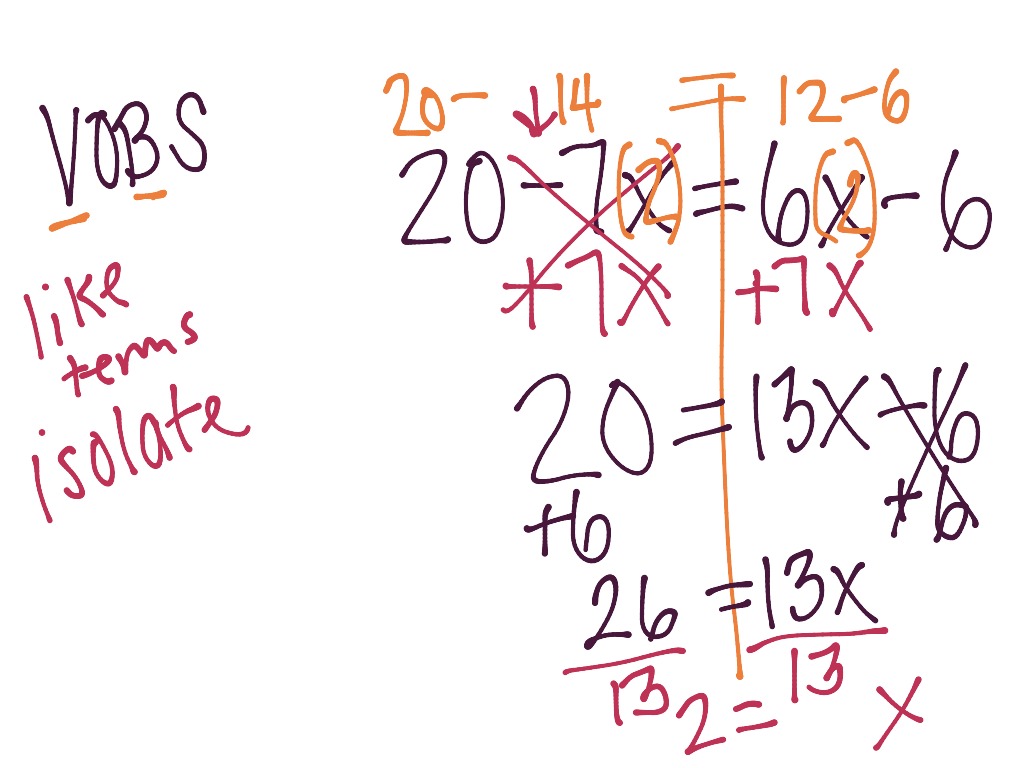 VOBS
like
terms
isolate
20 - 14 = 12 - 6
20 - 7x(2) = 6x(2) - 6
+7x +7x
20 = 13x - 6
+6 +6
26 = 13x
13 13
2 = x